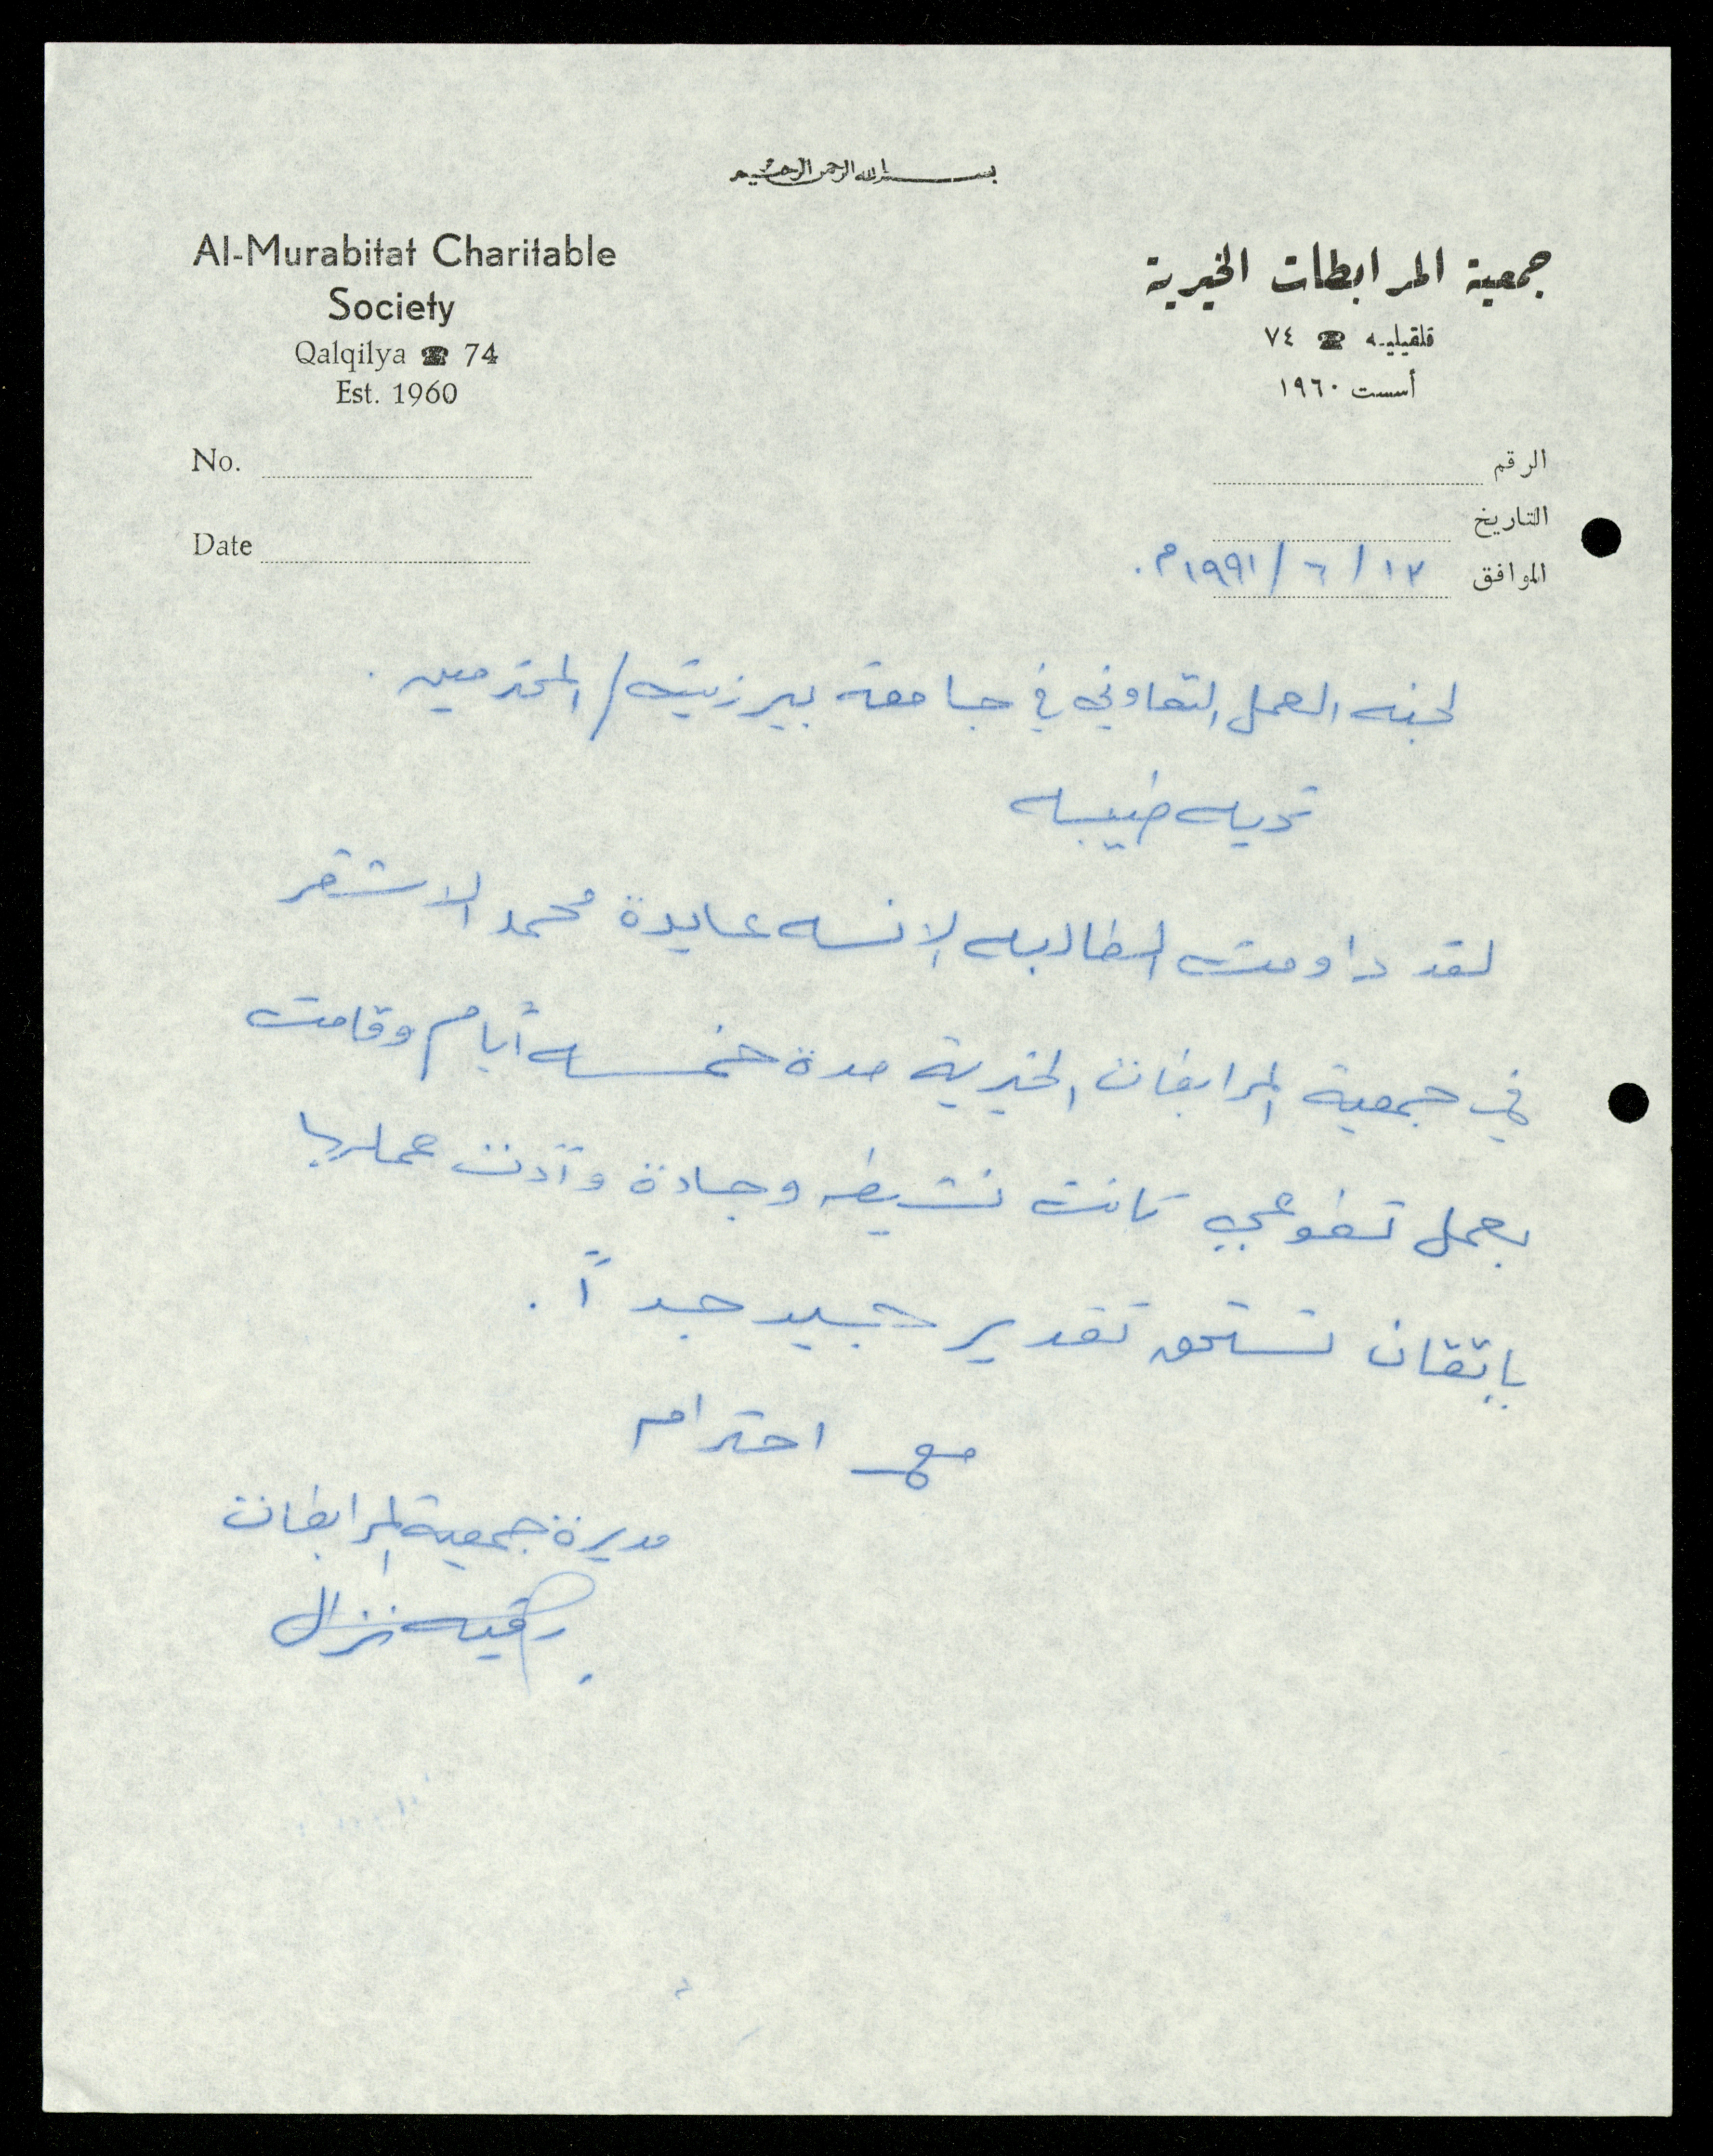 بسم الله الرحمن الرحيم
Al-Murabitat Charitable
Society
Qalqilya ☎ 74
Est. 1960
No.
Date
جمعية المرابطات الخيرية
قلقيليه ☎ ٧٤
أسست ١٩٦٠
الرقم
التاريخ
الموافق ١٣ / ٦ / ١٩٩١م.
لجنه العمل التعاوني في جامعة بيرزيت / المحترمين.
تحيه طيبه
لقد داومت الطالبه الانسه عايدة محمد الاشقر
في جمعية المرابطات الخيرية مدة خمسه أيام وقامت
بعمل تطوعي كانت نشيطه وجادة وأدت عملها
باتقان تستحق تقدير جيد جداً.
مع احترام
مديرة جمعية المرابطات
رقيه نزال